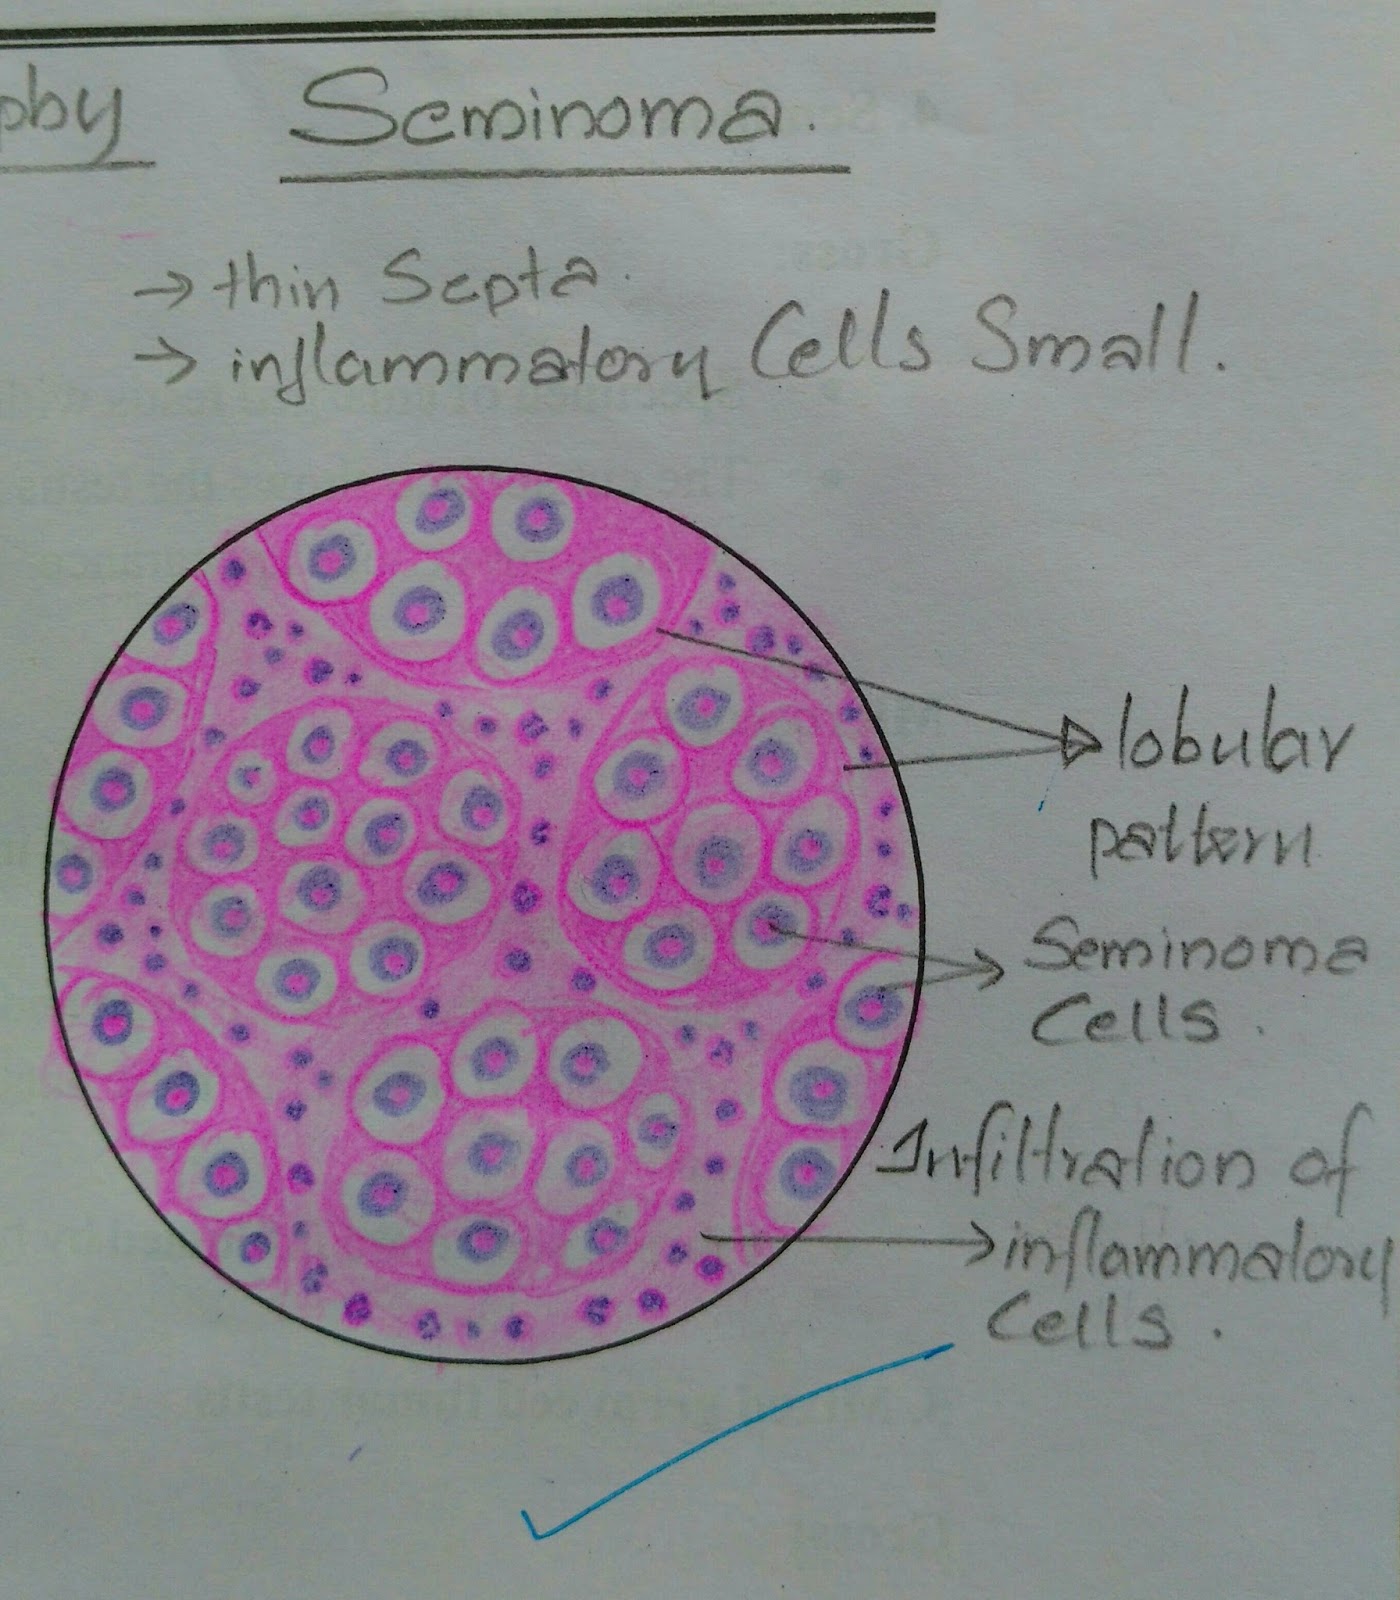 Seminoma.
→ thin Septa.
→ inflammatory Cells Small.
lobular
pattern
Seminoma
Cells.
Infiltration of
inflammatory
Cells.